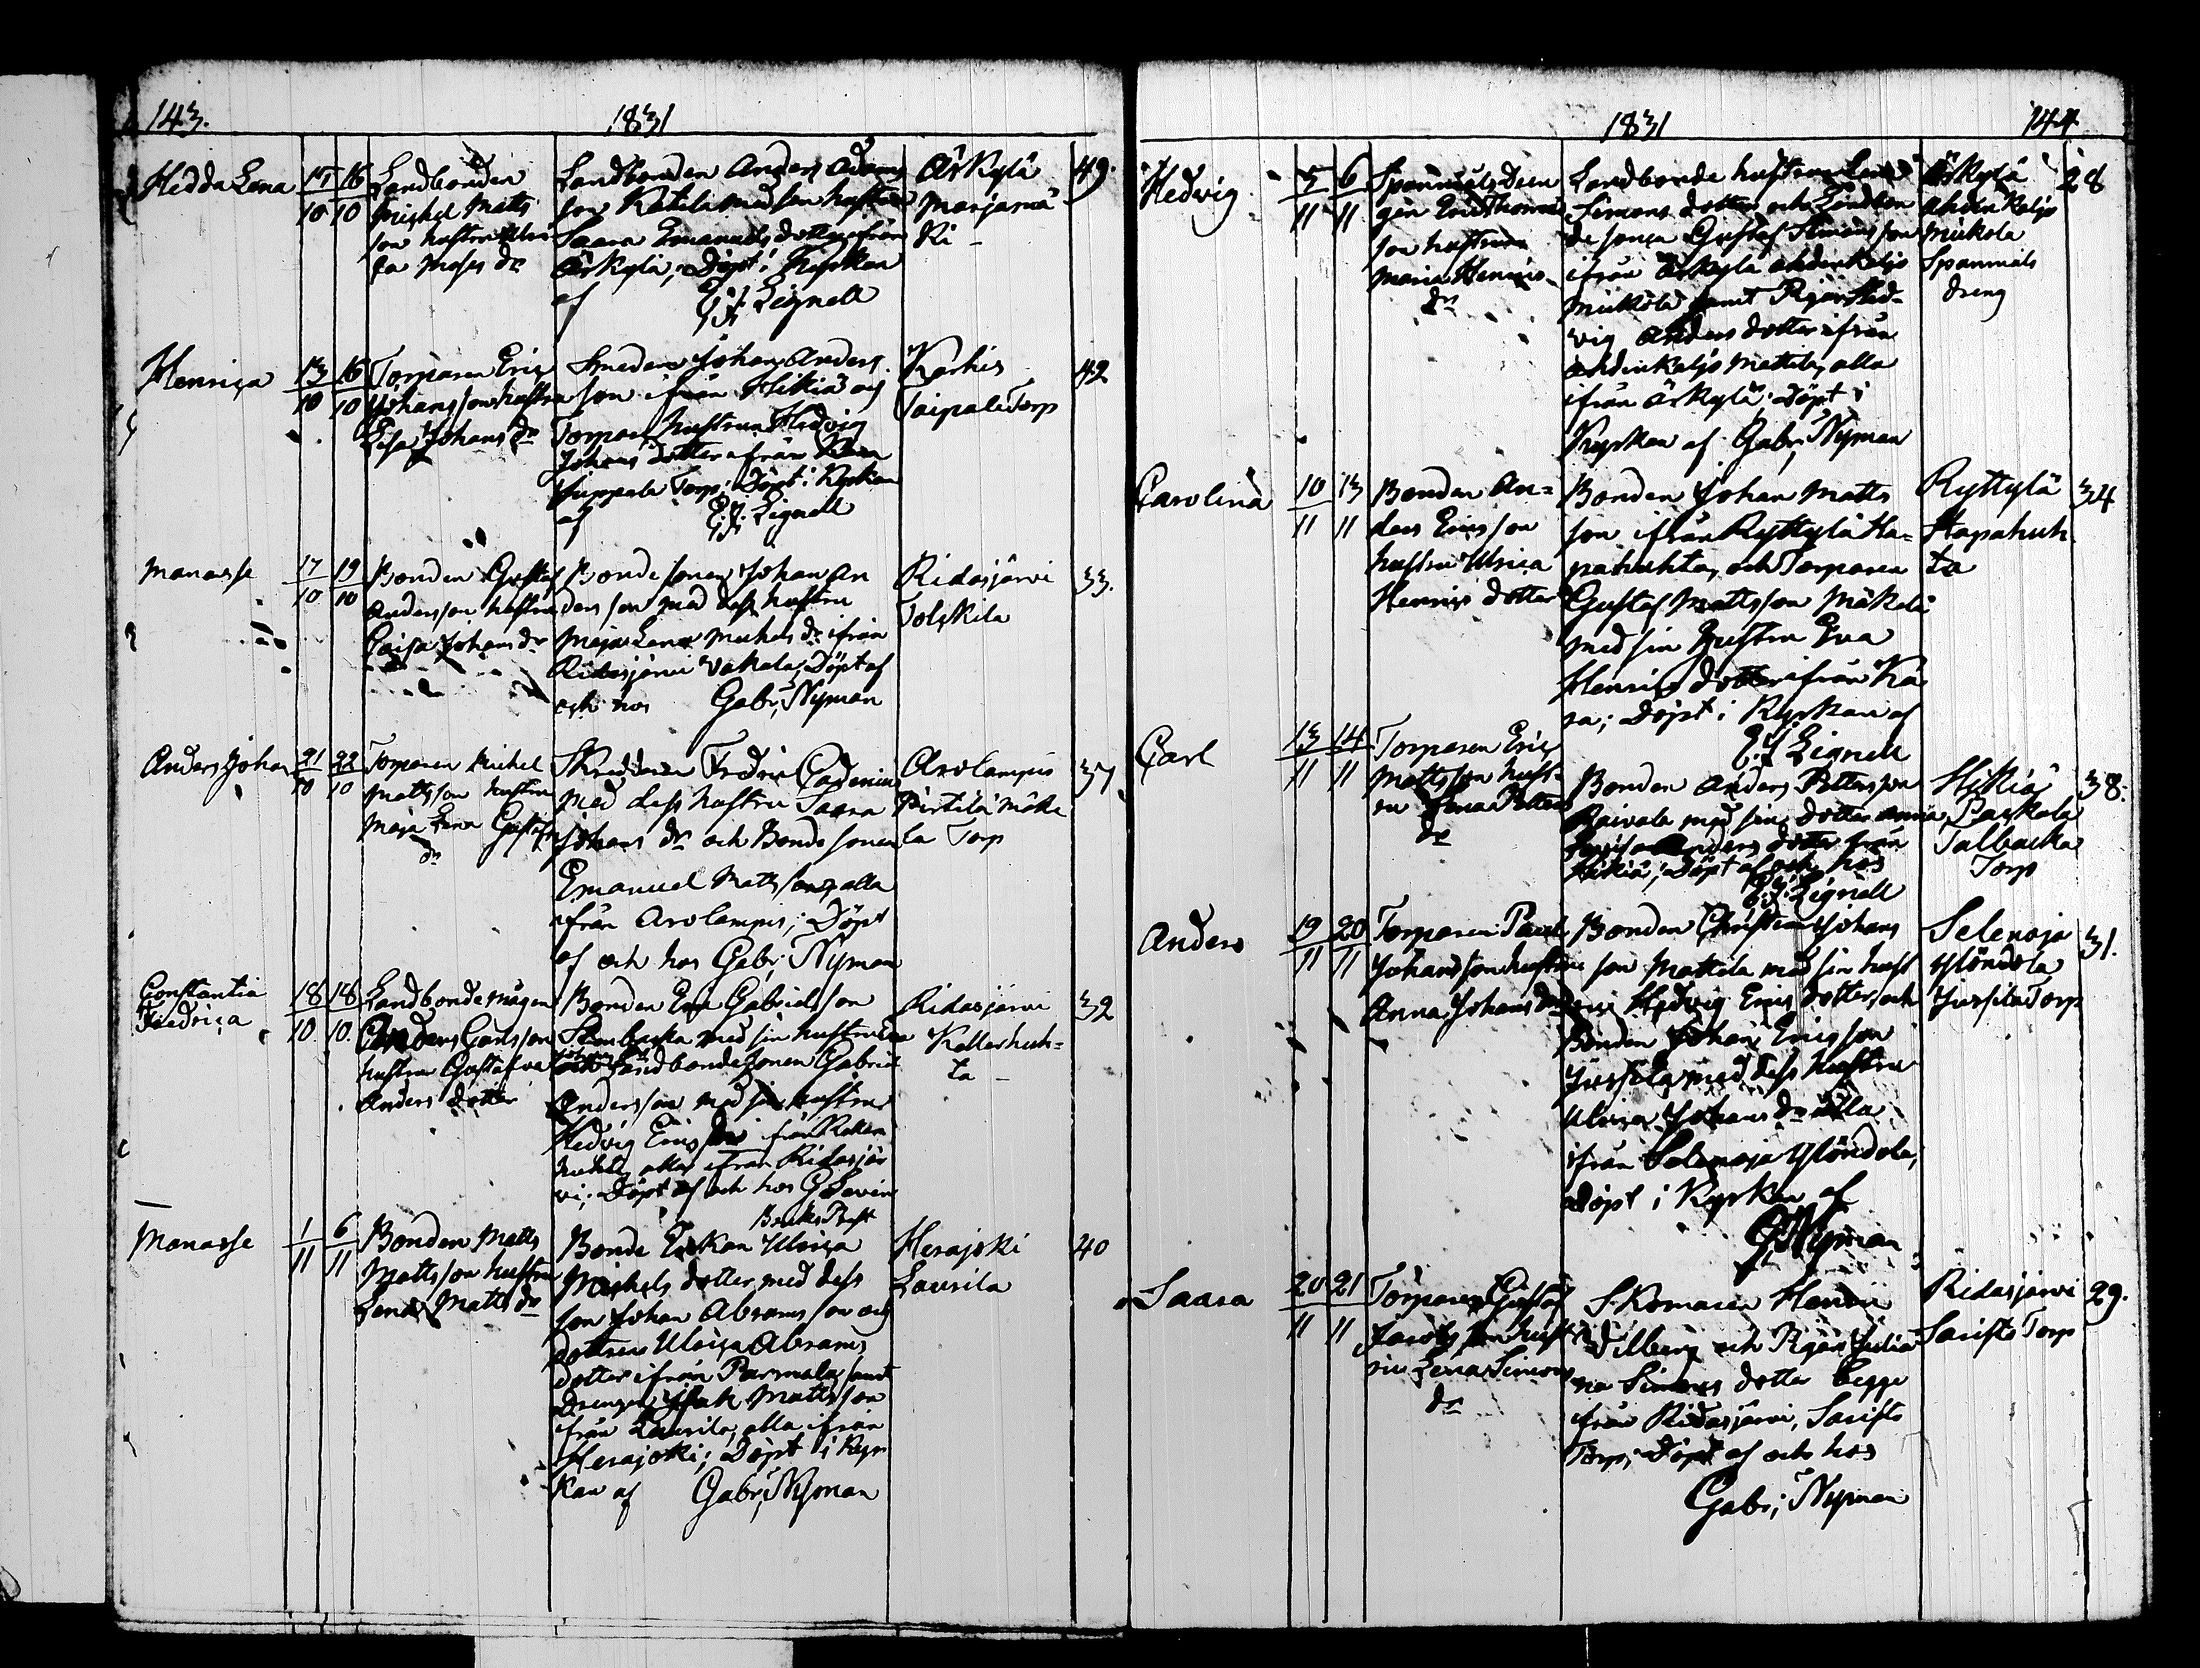 143. 1831
Hedda Lena 15/10 16/10 Landbonden
Michel Matts
son hustru Ulri
ca Moses dr
Landbonden Anders Adams
son Katila med sin hustru
Saara Emanuels dotter ifrån
Ärkylä; Döpt i Kyrkan
af E. J. Lignell
Ärkylä
Marjamä
ki
49.
Henrica 13/10 16/10 Torparen Eric
Johansson hustru
Lisa Johans dr
Smeden Johan Anders
son ifrån Hikiä och
Torpare hustrun Hedvig
Johans dotter ifrån
Juppala Torp; Döpt i Kyrkan
af E. J. Lignell
Karhis
Taipale Torp
42
Manasse 17/10 19/10 Bonden Gustaf
Andersson hustru
Caisa Johans dr
Bonde sonen Johan An
ders son med dess hustru
Maja Lena Michels dr ifrån
Ridasjärvi Vakala; Döpt af
och hos Gabr; Nyman
Ridasjärvi
Tolskila
33.
Anders Johan 21/10 22/10 Torparen Michel
Mattsson hustru
Maja Lena Gustafs
dr
Skreddaren Fredric
med dess hustru Saara
Johans dr och Bonde sonen
Emanuel Mattsson, alla
ifrån Arolampis; Döpt
af och hos Gabr; Nyman
Arolampis
Pirtilä Mäke
la Torp
37
Constantia
Fredrica
18/10 18/10. Landbonde mågen
Anders Carlsson
hustru Gustafva
Anders dotter
Bonden Eric Gabrielsson
Stenbacka med sin hustru
och Landbonde sonen Gabriel
Andersson med sin hustru
Hedvig Erics dr från Kaller
huhta, alla ifrån Ridasjär
vi; Döpt af och hos G Savin
Bruks Prest
Ridasjärvi
Kallerhuh=
ta
32
Manasse 1/11 6/11 Bonden Matts
Mattsson hustru
Lena Matts dr
Bonde Enkan Ulrica
Michels dotter med dess
son Johan Abrams son och
dottren Ulrica Abrams
dotter ifrån Parmala, samt
Drengen Isak Mattsson
ifrån Laurila, alla ifrån
Herajoki; Döpt i Kyr
kan af Gabr; Nyman
Herajoki
Laurila
40
1831 144
Hedvig 5/11 6/11 Spanmåls Dren
gen Eric Thomas
son hustrun
Maria Henrics
dr
Landbonde hustrun Lena
Simons dotter och Landbon
de sonen Gustaf Simonsson
ifrån Ärkylä Ahdinkaljo
Mickola samt Pigan Hed-
vig Anders dotter ifrån
Ahdinkaljo Mattila, alla
ifrån Ärkylä; Döpt i
Kyrkan af Gabr; Nyman
Ärkylä
Ahdinkaljo
Mickola
Spanmåls
dreng
28
Carolina 10/11 13/11 Bonden An=
ders Ericsson
hustru Ulrica
Henrics dotter
Bonden Johan Matts
son ifrån Ryttylä Ha=
pahuhta, och Torparen
Gustaf Mattsson Mäkelä
med sin Hustru Eva
Henrics dotter ifrån Ka
ra; Döpt i Kyrkan af
E. J. Lignell
Ryttylä
Hapahuh
ta
34
Carl 13/11 14/11 Torparen Eric
Mattsson hust-
ru Lena Petters
dr
Bonden Anders Pettersson
Raivala med sin dotter Anna
Lovisa Anders dotter från
Hikiä; Döpt af och hos
E. J. Lignell
Hikiä
Paskala
Talbacka
Torp
38.
Anders 19/11 20/11 Torparen Paul
Johansson hustru
Anna Johans dr
Bonden Christian Johans
son Mattila med sin hust
ru Hedvig Erics dotter, och
Bonden Johan Ericsson
Jussila med dess hustru
Ulrica Johans dr alla
ifrån Selenoja Ylöndola;
Döpt i Kyrkan af
G Nyman
Selenoja
Ylöndola
Jussila Torp
31.
Saara 20/11 21/11 Torparen Gustaf
Jacobsson hust
ru Lena Simons
dr
Skomaren Henric
Dilberg och Pigan Julia
na Simons dotter begge
ifrån Ridasjärvi, Saristo
Torp; Döpt af och hos
Gabr; Nyman
Ridasjärvi
Saristo Torp
29.